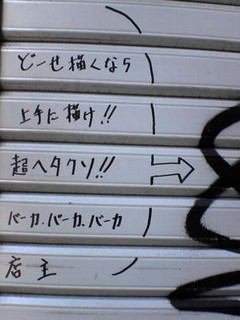 どーせ描くなら
上手に描け!!
超ヘタクソ!!
バーカ.バーカ.バーカ
店主